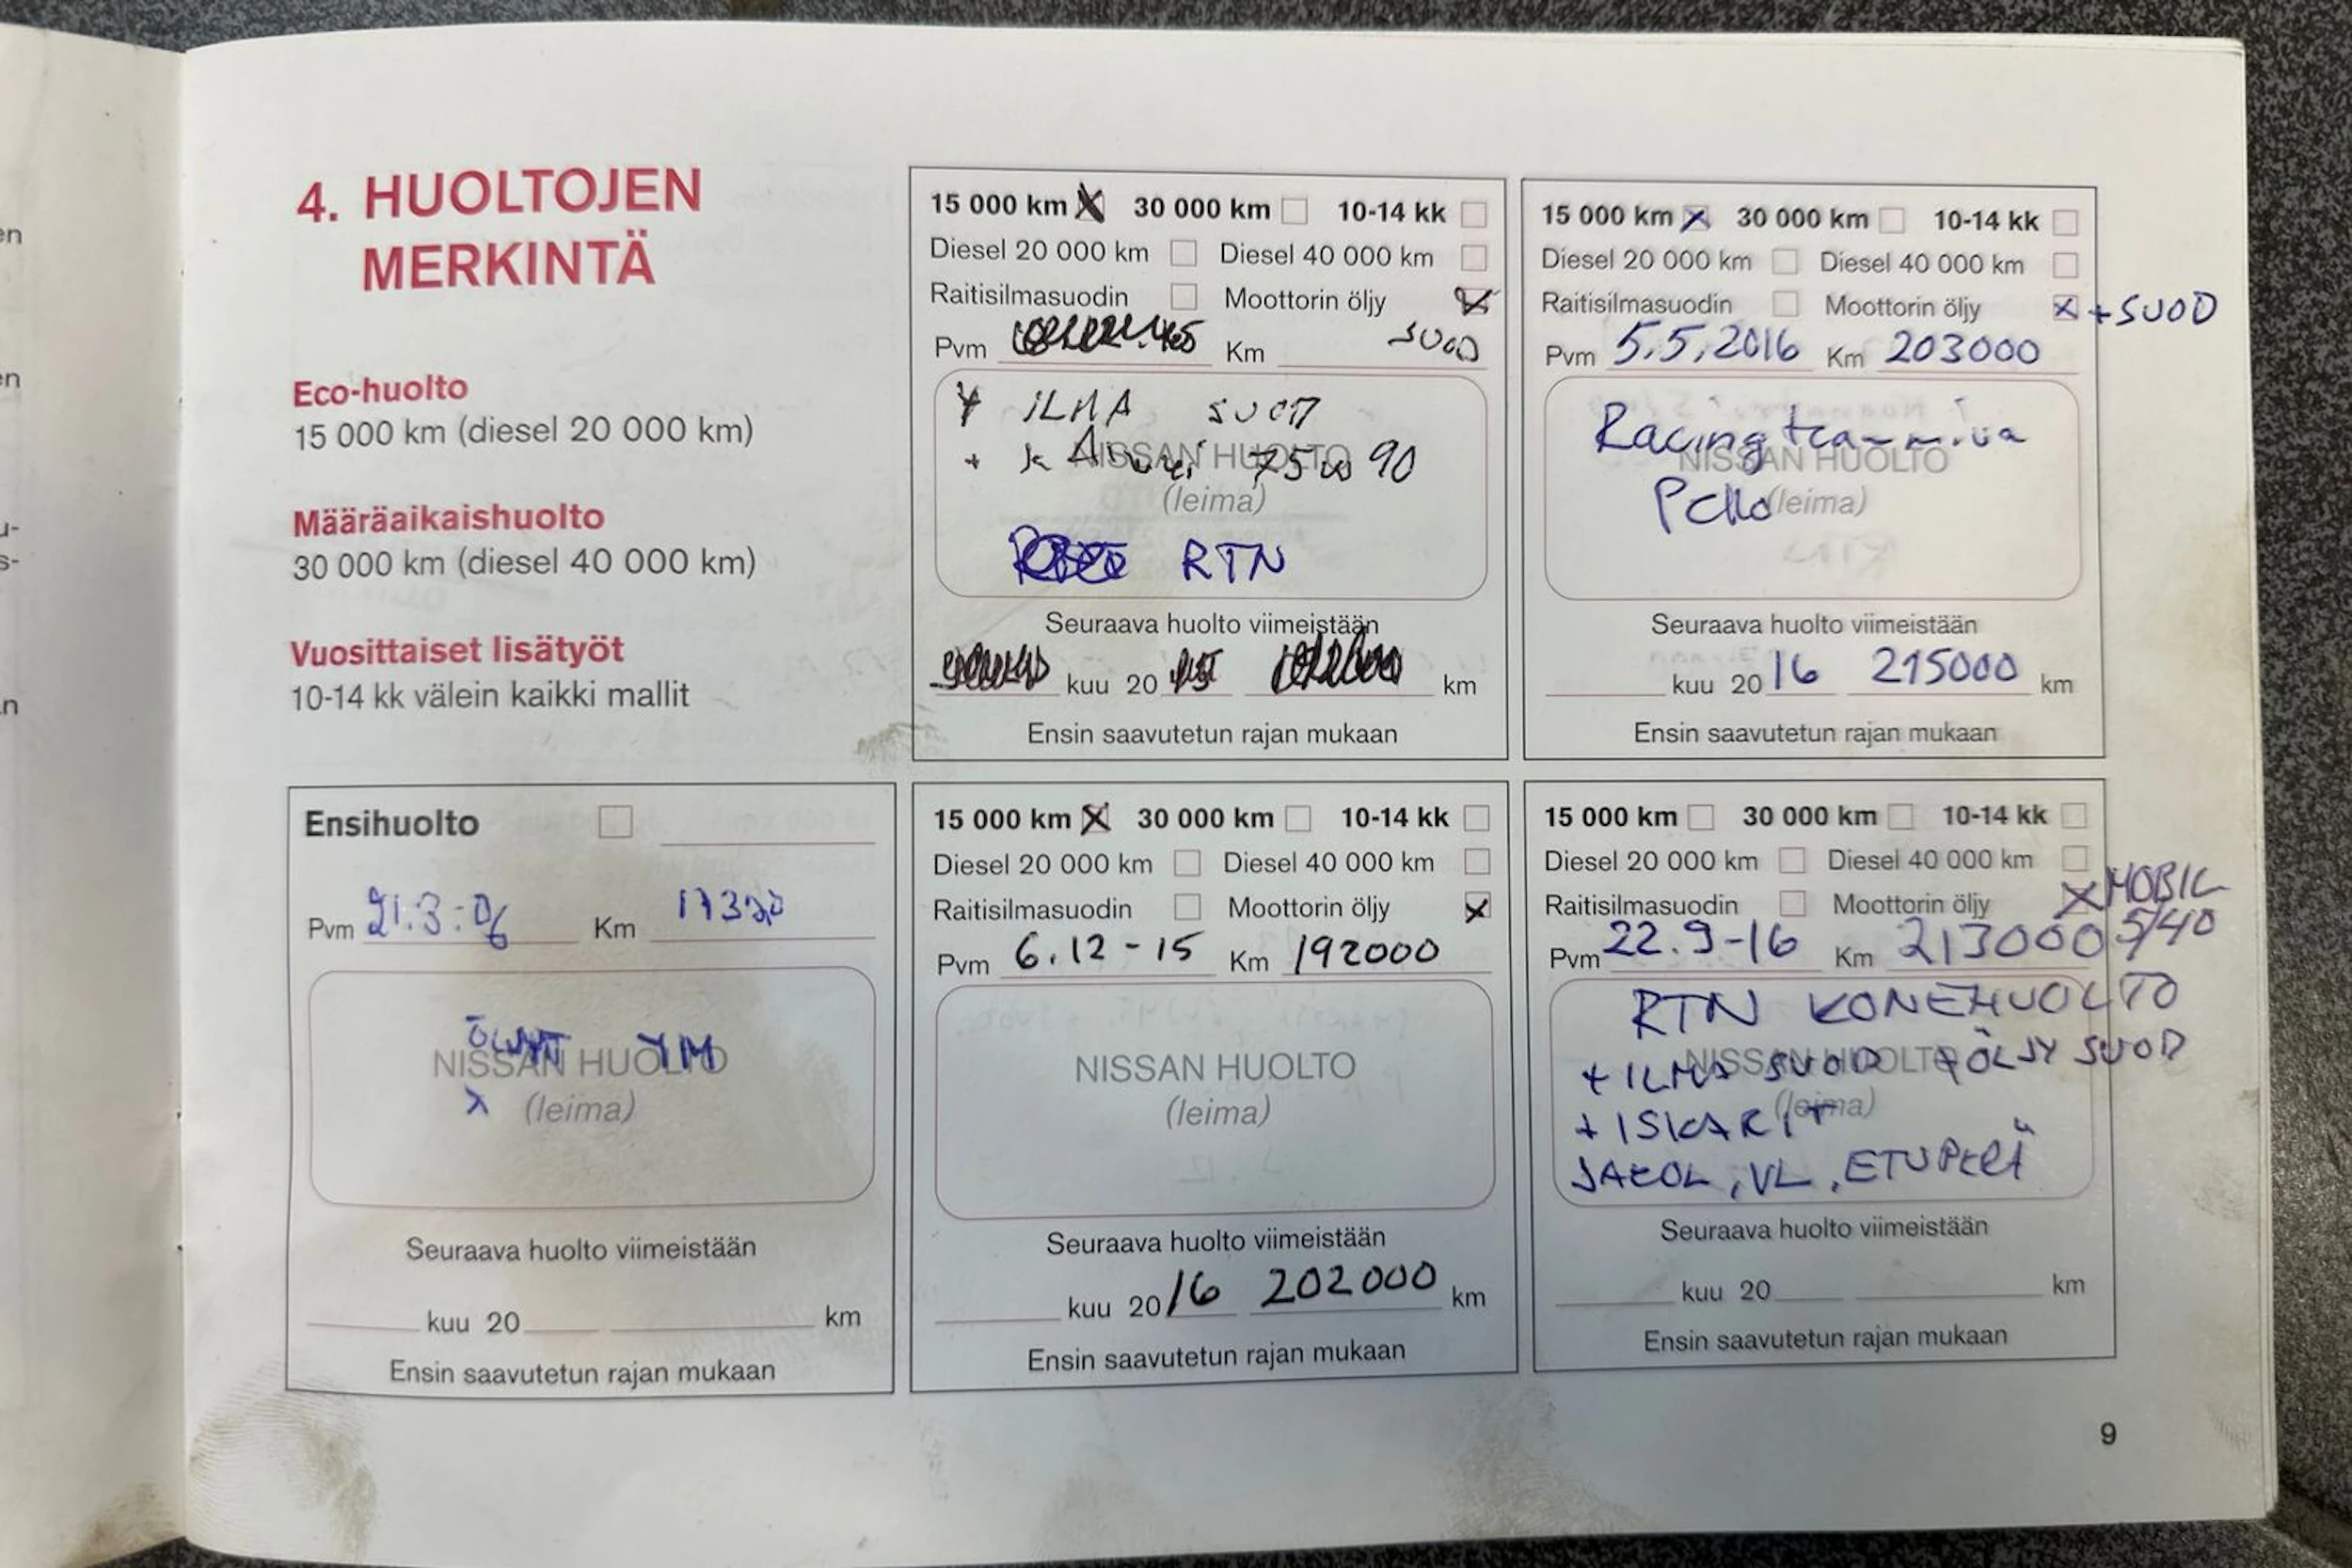 en
en
u-
s-
an
4. HUOLTOJEN
MERKINTÄ
Eco-huolto
15 000 km (diesel 20 000 km)
Määräaikaishuolto
30 000 km (diesel 40 000 km)
Vuosittaiset lisätyöt
10-14 kk välein kaikki mallit
Ensihuolto
Pvm 21.3.06 Km
YM
NISSAN HUOLTO
x (leima)
Seuraava huolto viimeistään
kuu 20 km
Ensin saavutetun rajan mukaan
15 000 km X 30 000 km 10-14 kk
Diesel 20 000 km Diesel 40 000 km
Raitisilmasuodin Moottorin öljy X
Pvm Km SUOD
+ ILMA SUOD
NISSAN HUOLTO
+ 75w90
(leima)
RTN
Seuraava huolto viimeistään
kuu 20 km
Ensin saavutetun rajan mukaan
15 000 km X 30 000 km 10-14 kk
Diesel 20 000 km Diesel 40 000 km
Raitisilmasuodin Moottorin öljy X
Pvm 6.12-15 Km 192000
NISSAN HUOLTO
(leima)
Seuraava huolto viimeistään
kuu 2016 202000 km
Ensin saavutetun rajan mukaan
15 000 km X 30 000 km 10-14 kk
Diesel 20 000 km Diesel 40 000 km
Raitisilmasuodin Moottorin öljy X + SUOD
Pvm 5.5.2016 Km 203000
Racing
NISSAN HUOLTO
Pello (leima)
Seuraava huolto viimeistään
kuu 2016 215000 km
Ensin saavutetun rajan mukaan
15 000 km 30 000 km 10-14 kk
Diesel 20 000 km Diesel 40 000 km
Raitisilmasuodin Moottorin öljy X MOBIL
Pvm 22.9-16 Km 213000 5/40
RTN KONEHUOLTO
NISSAN HUOLTO
+ ILMA SUOD + ÖLJY SUOD
(leima)
+ ISKARIT
JAKOL, VL, ETUPERÄ
Seuraava huolto viimeistään
kuu 20 km
Ensin saavutetun rajan mukaan
9